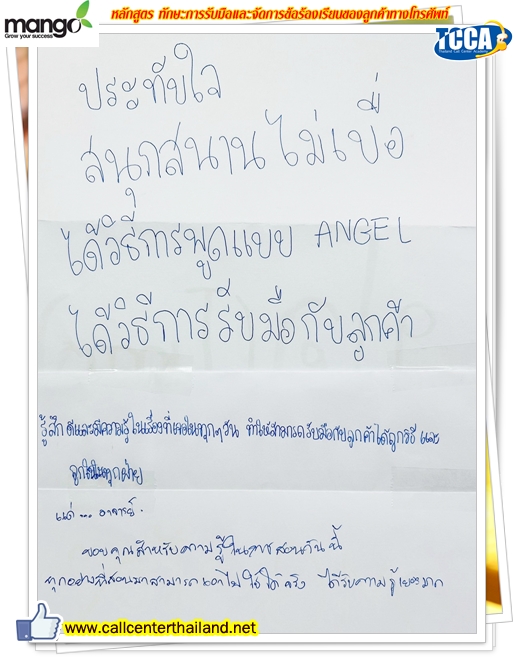 mango
Grow your success
หลักสูตร ทักษะการรับมือและจัดการข้อร้องเรียนของลูกค้าทางโทรศัพท์
TCCA
Thailand Call Center Academy
ประทับใจ
สนุกสนาน ไม่เบื่อ
ได้วิธีการพูดแบบ ANGEL
ได้วิธีการรับมือกับลูกค้า
รู้สึกดีและมีความรู้ในเรื่องที่เจอในทุกๆวัน ทำให้สามารถรับมือกับลูกค้าได้ถูกวิธี และ
ถูกใจในทุกฝ่าย
แด่ ... อาจารย์.
ขอบคุณสำหรับความรู้ในการสอนวันนี้
ทุกอย่างที่สอนมาสามารถเอาไปใช้ได้จริง ได้รับความรู้เยอะมาก
www.callcenterthailand.net